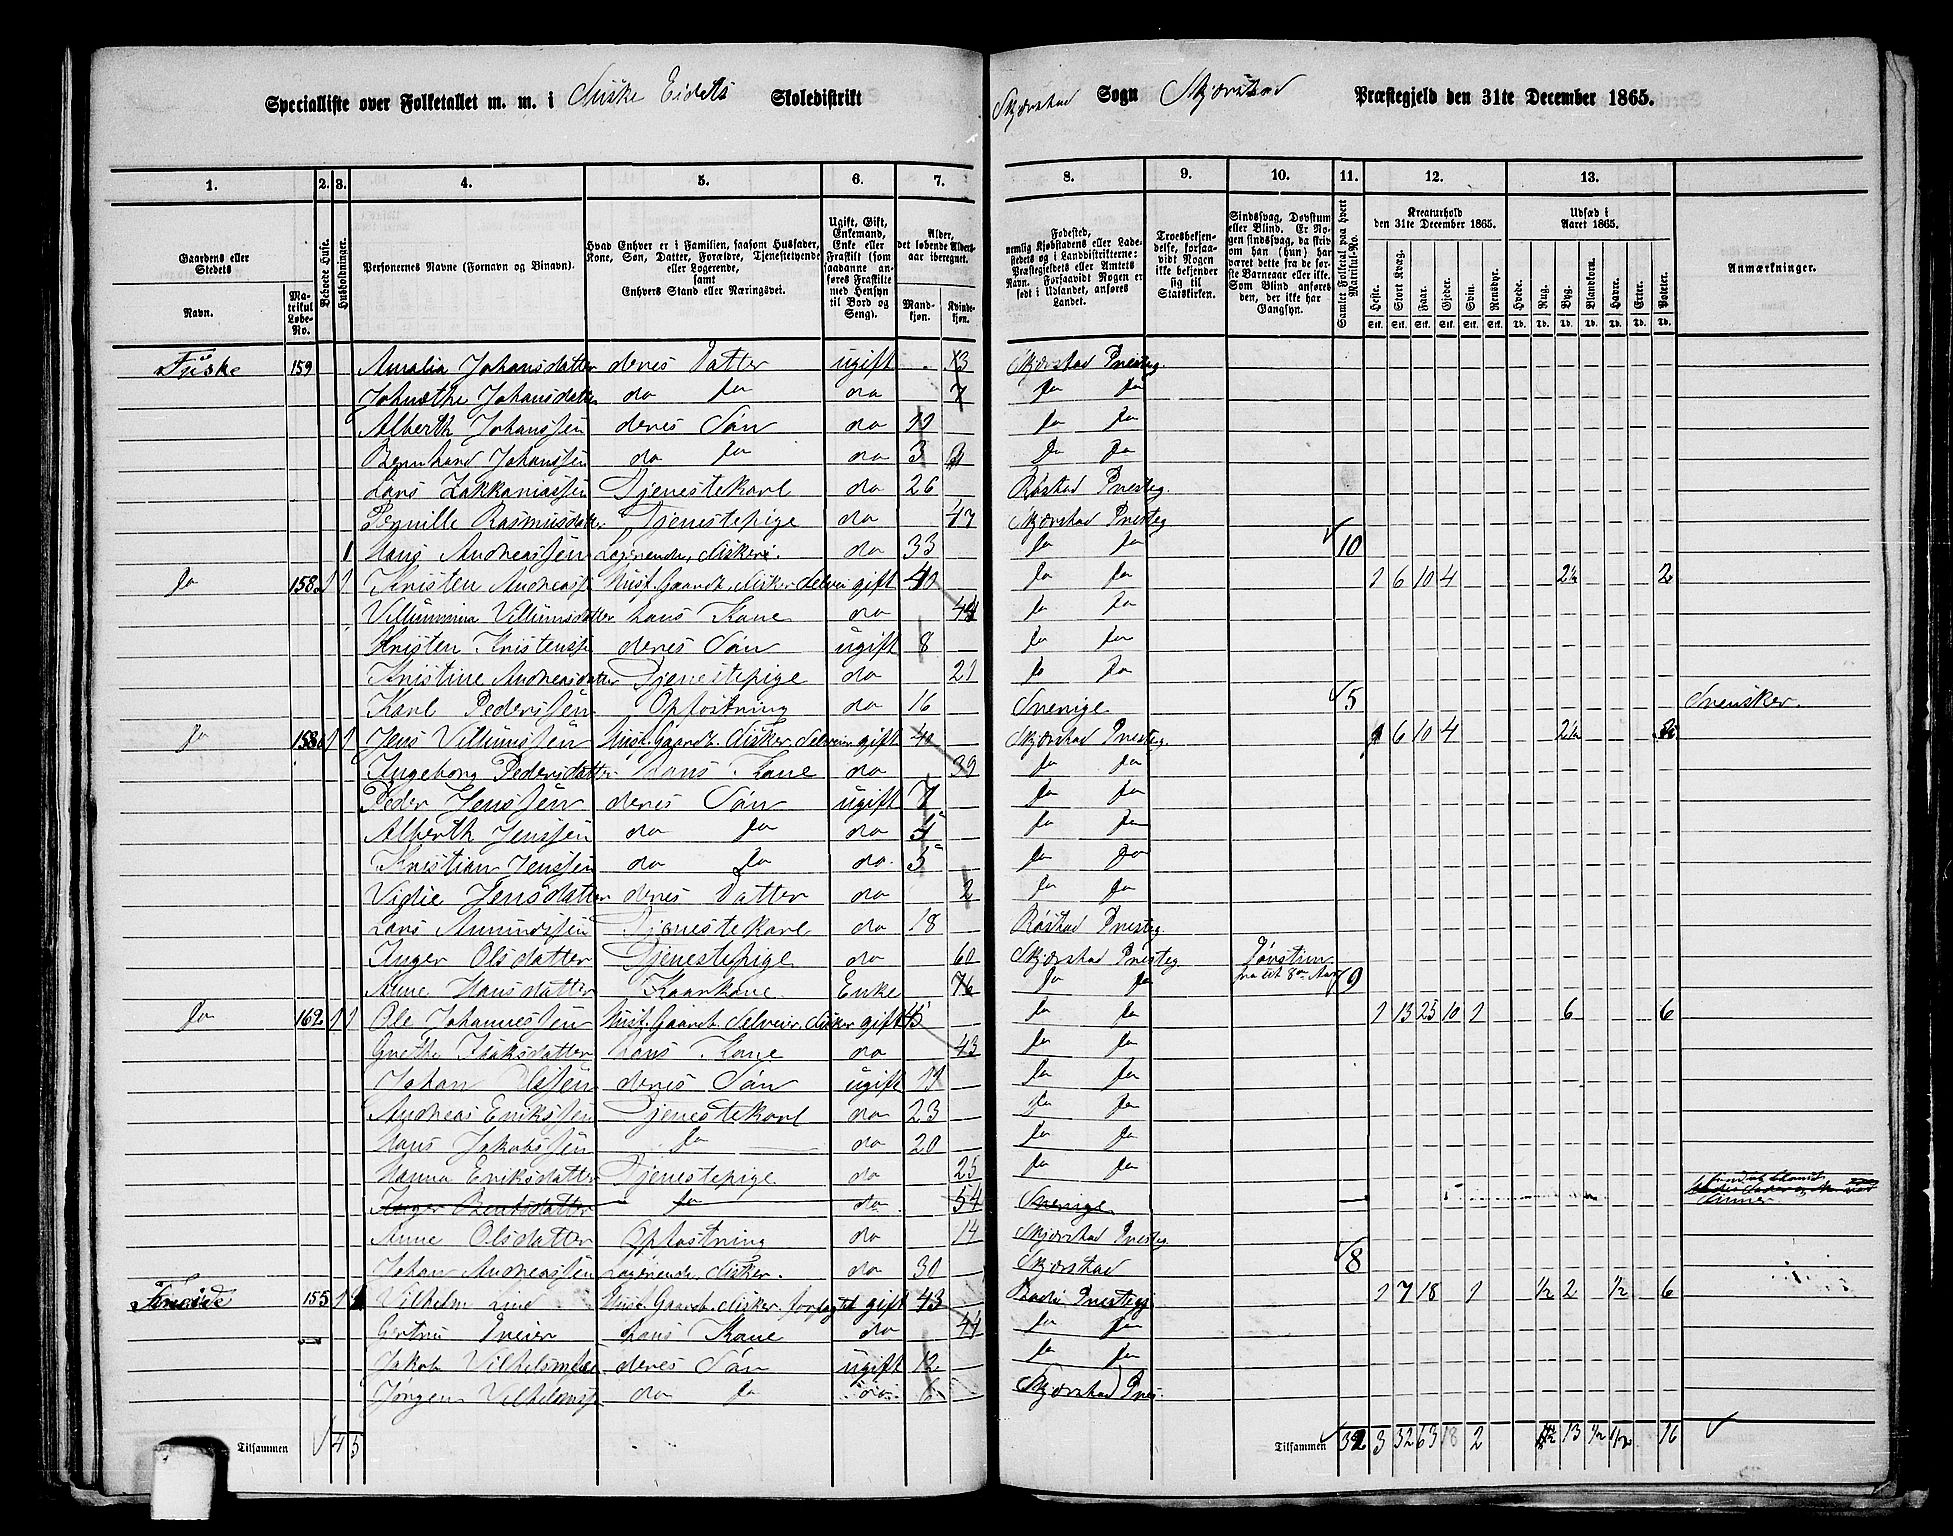 Specialliste over Folketallet m. m. i Fuske Eidets Skoledistrikt Skjærstad Sogn Skjærstad Præstegjeld den 31te December 1865.
1. 2. 3. 4. 5. 6. 7. 8. 9. 10. 11. 12. 13.
Gaardens eller Stedets Navn. Matrikul Løbe-No. Beboede Huse. Husholdninger. Personernes Navne (Fornavn og Binavn). Hvad Enhver er i Familien, saasom Husfader, Kone, Søn, Datter, Forældre, Tjenestetyende eller Logerende, samt Enhvers Stand eller Næringsvei. Ugift, Gift, Enkemand, Enke eller Fraskilt (som saadanne anføres Fraskilte med Hensyn til Bord og Seng). Alder, det løbende Alders-aar iberegnet. Mandkjøn. Kvindekjøn.
Fødested, nemlig Kjøbstadens eller Ladestedets eller i Landdistrikterne: Præstegjeldets eller Amtets Navn. Forsaavidt Nogen er født i Udlandet, anføres Landet. Troesbekjendelse, forsaavidt Nogen ikke bekjender sig til Statskirken. Sindssvag, Døvstum eller Blind. Er Nogen sindssvag, da skriv om han (hun) har været dette fra de første Barneaar eller ikke. Som Blind anføres den, der ikke har Gangsyn. Samlet Folketal paa hvert Matrikul-No. Kreaturhold den 31te December 1865. Udsæd i Aaret 1865. Anmærkninger.
Heste. Stort Kvæg. Faar. Gjeder. Svin. Rensdyr. Hvede. Rug. Byg. Blandkorn. Havre. Erter. Poteter.
Stk. Stk. Stk. Stk. Stk. Stk. Td. Td. Td. Td. Td. Td. Td.
Fuske 159 Amalia Johansdatter deres Datter ugift 13 Skjærstad Præsteg.
Johnethe Johansdatter do do do 7 do do
Alberth Johanssen deres Søn do 11 do do
Bernhard Johanssen do do do 3 do do
Lars Zakkariassen Tjenestekarl do 26 Bøstad Præsteg.
Pernille Rasmusdatter Tjenestepige do 47 Skjærstad Præsteg
1 Hans Andreassen Logerende, Fisker do 33 do do 10
do 158 1 1 Kristen Andreass Husf. Gaardb. Fisker Selveier gift 40 do do 1 6 10 4 2½ 2
Villumina Villumsdatter hans Kone do 44 do do
Kristen Kristenss deres Søn ugift 8 do do
Kristine Andreasdatter Tjenestepige do 21 do do
Karl Pederssen Opfostring do 16 Sverige 5 Svensker.
do 158 1 1 Jens Villumssen Husf. Gaardb. Fisker Selveier gift 40 Skjærstad Præsteg. 1 6 10 4 2½ 2
Ingeborg Pedersdatter hans Kone do 39 do do
Peder Jenssen deres Søn ugift 7 do do
Alberth Jenssen do do do 5 do do
Kristian Jenssen do do do 5 do do
Vidie Jensdatter deres Datter do 2 do do
Lars Amundssen Tjenestekarl do 18 Bøstad Præsteg.
Inger Olsdatter Tjenestepige do 60 Skjærstad Præsteg. Døvstum
Anne Hansdatter Kaarkone Enke 76 do do fra sit 8de Aar 9
do 162 1 1 Ole Johannessen Husf. Gaardb. Selveier, Fisker gift 45 do do 1 13 25 10 1 6 6
Grethe Isaksdatter hans Kone do 43 do do
Johan Olssen deres Søn ugift 11 do do
Andreas Erikssen Tjenestekarl do 23 do do
Hans Jakobssen do do 20 do do
Hanna Eriksdatter Tjenestepige do 25 do do
Inger Bentsdatter do do 54 Sverige
Anne Olsdatter Opfostring do 14 Skjærstad Præsteg
Johan Andreassen Logerende, Fisker. do 30 Skjærstad 8
155 1 Vilhelm Lind Husf. Gaardb. Fisker forpagtet gift 43 Bodø Præsteg 1 7 18 1 ½ 2 ½ 6
Gertru Dreier hans Kone do 44 do do
Jakob Vilhelmsen deres Søn ugift 12 do do
Jørgen Vilhelmss do do do 6 Skjærstad Præs.
Tilsammen 4 5 Tilsammen 32 3 32 63 18 2 13 ½ 16